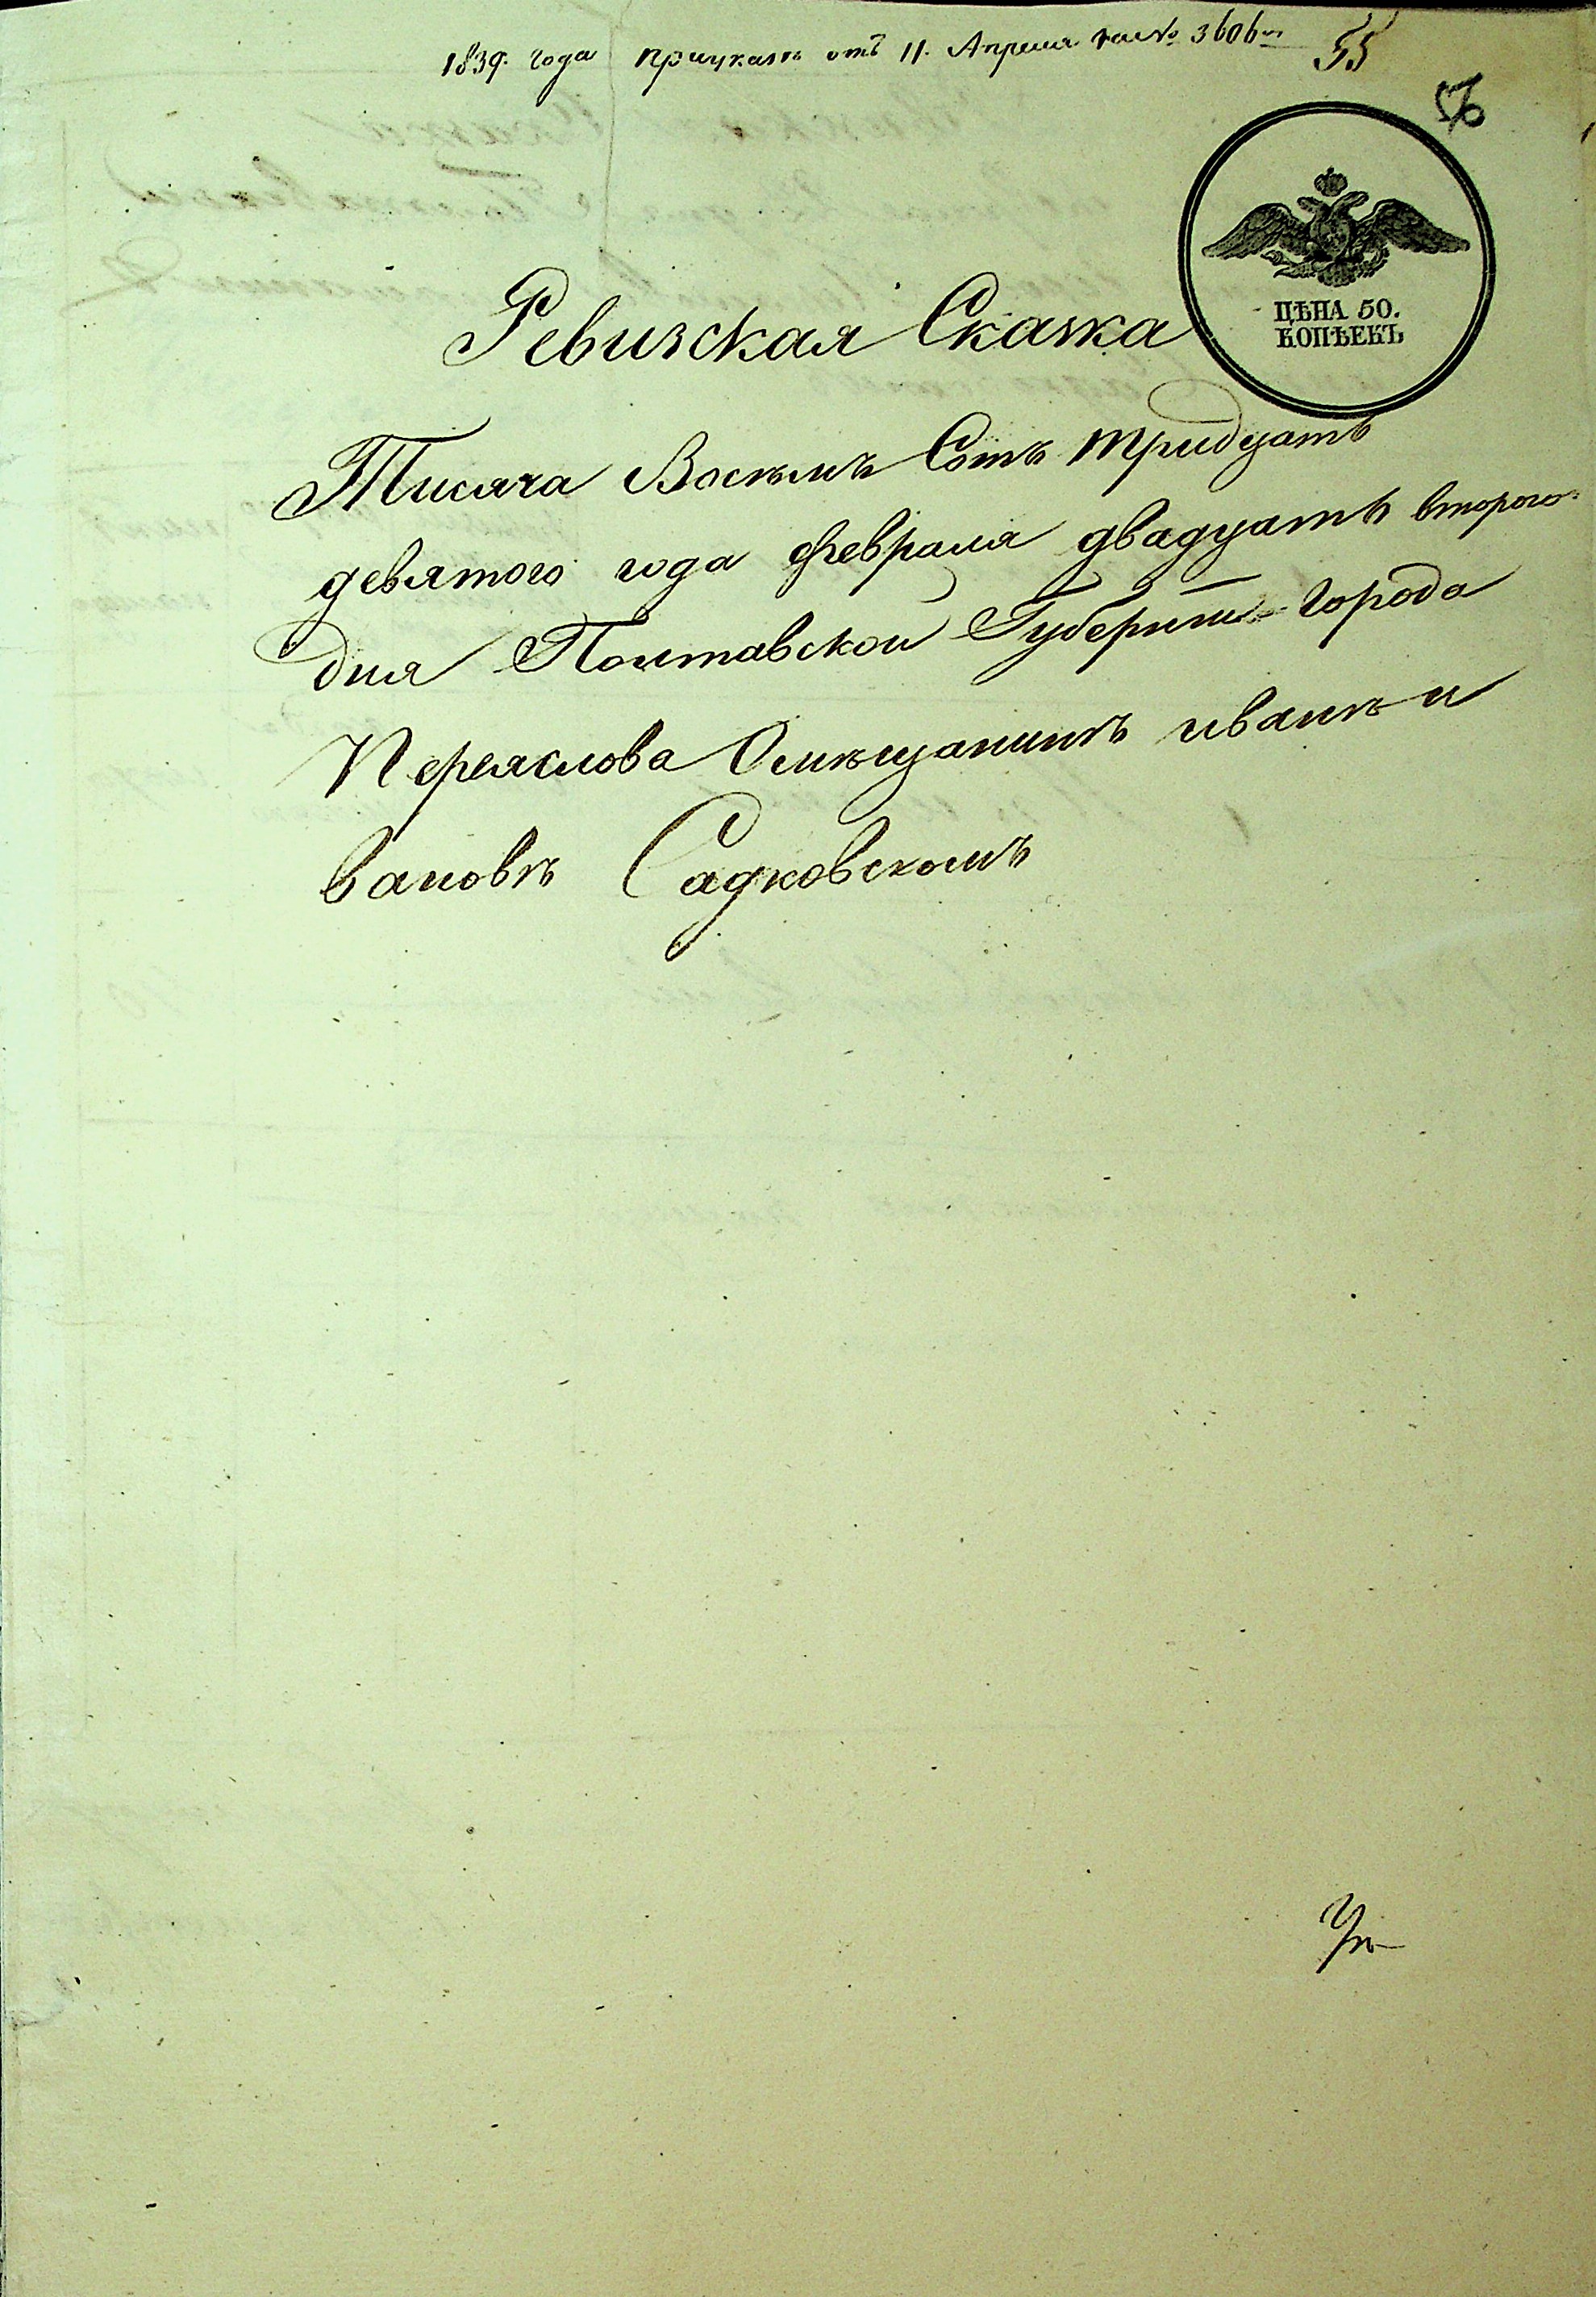 1839. года при указѣ отъ 11. Апреля за № 3606мъ 55
56
ЦѢНА 50.
КОПѢЕКЪ
Ревизская Сказка
Тисяча Восѣмъ Сотъ тридцать
девятого года февраля двадцать второго
дня Полтавскои Губернїи города
Переяслова Омѣщанинѣ иванѣ и
вановѣ Садковскомъ